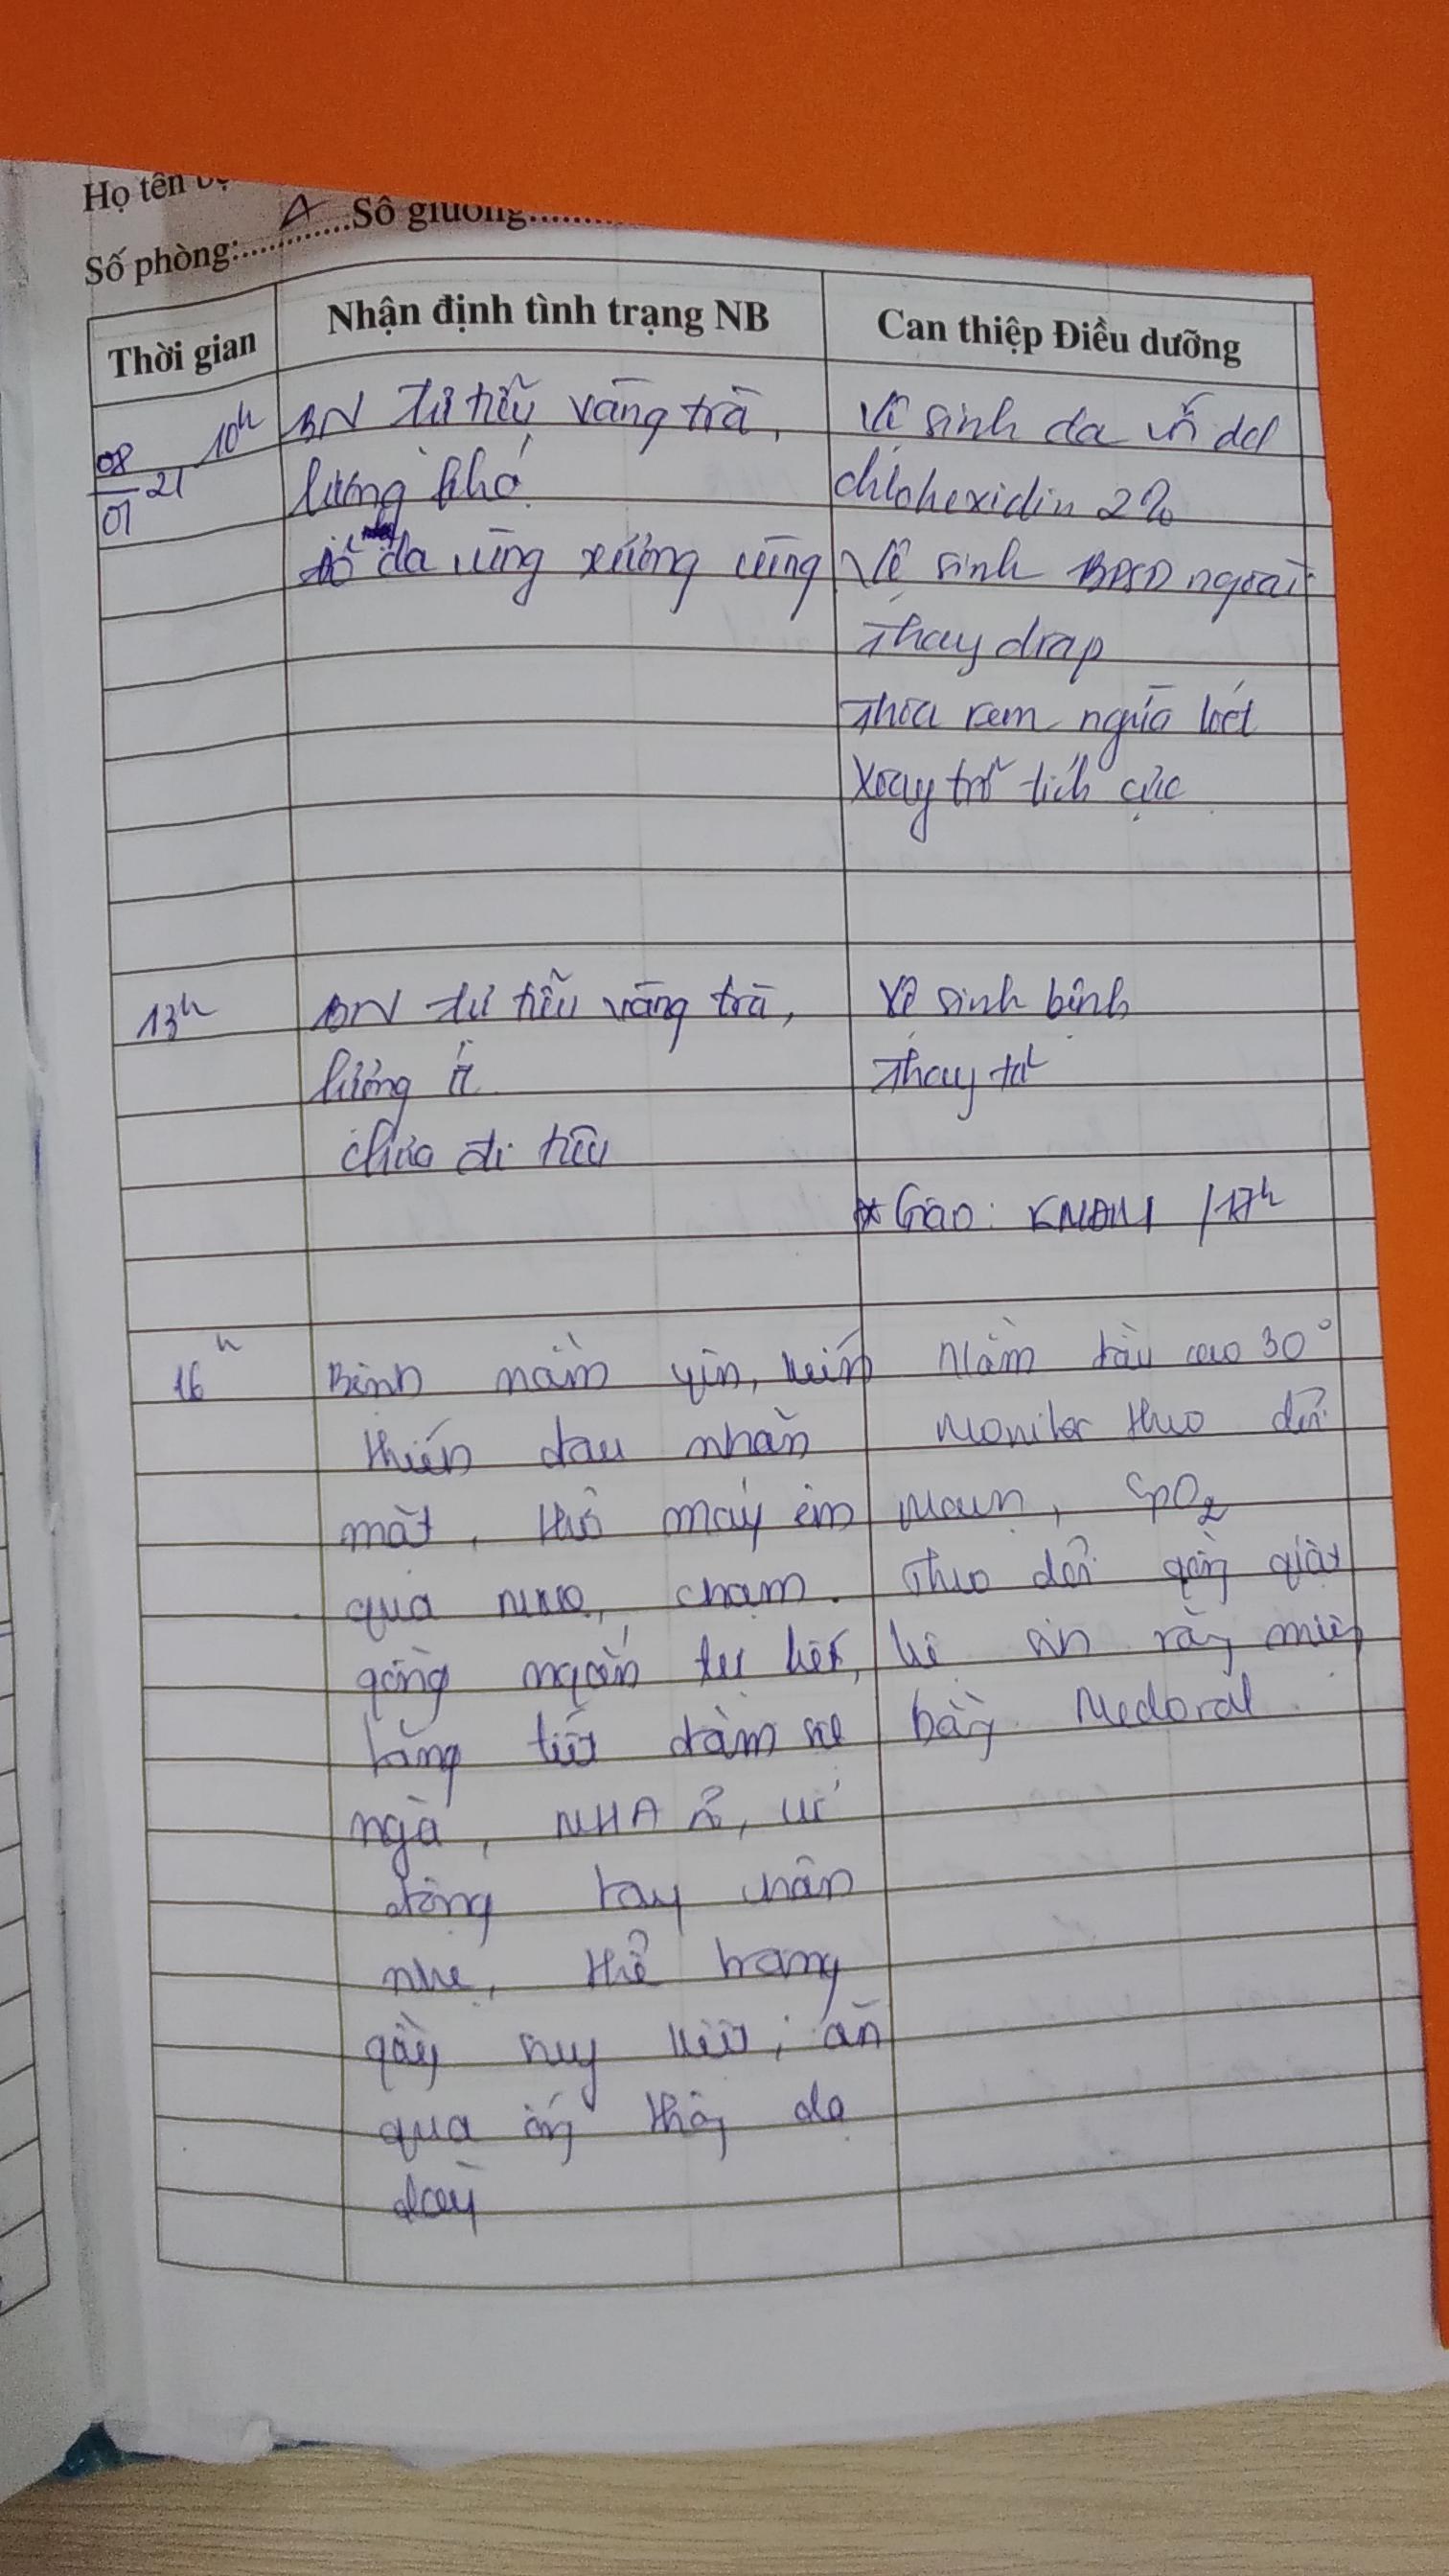 Họ tên
Số phòng:............A...Số giường.......
Thời gian
Nhận định tình trạng NB
Can thiệp Điều dưỡng
08/01 21 10h
BN tự tiểu vàng trà,
lượng khá
đỏ da vùng xương cùng
Vệ sinh da với dd
chlohexidin 2%
Vệ sinh BPSD ngoài
Thay drap
Thoa kem ngừa loét
Xoay trở tích cực
13h
BN tự tiểu vàng trà,
lượng ít
chưa đi tiêu
Vệ sinh bệnh
Thay tã
* Giao: /17h
16h
Bệnh nằm yên, kích
thích đau nhăn
mặt, thở máy êm
qua chạm
gồng ngắn tự hết,
tăng tiết đàm
ngà, HA ổ, cử
động tay chân
nhẹ, thể trạng
gầy suy kiệt, ăn
qua ống thông dạ
dày
Nằm đầu cao 30°
Monitor theo dõi
SpO2
Theo dõi gồng giật
vệ sin răng miệng
bằng Medoral